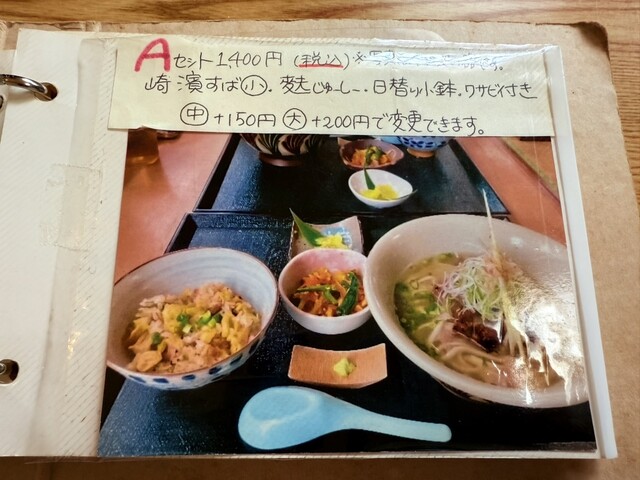 Aセット1,400円(税込)※写真
崎濱すば㊥小・麩じゅーしー・日替り小鉢・ワサビ付き
㊥+150円 大+200円で変更できます。